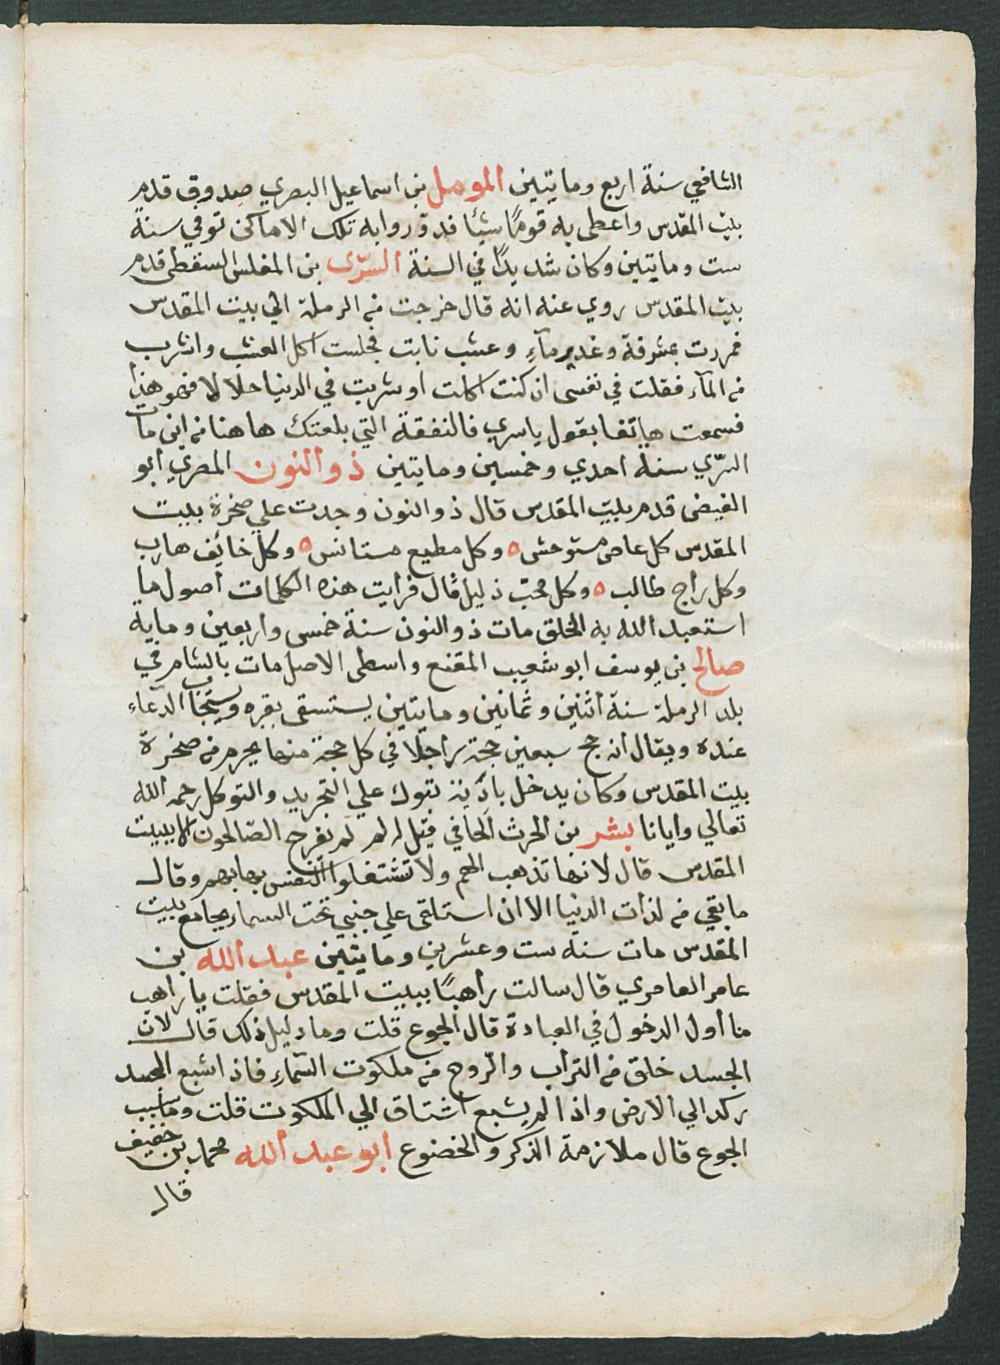 الشافعي سنة اربع ومايتين المومل بن اسماعيل البصري صدوق قدم
بيت المقدس واعطى به قوما شيئا فدوروابه تلك الاماكن توفي سنة
ست ومايتين وكان شديدا في السنة السرى بن المغلس السقطي قدم
بيت المقدس روي عنه انه قال خرجت من الرملة الي بيت المقدس
فمررت بمشرفة وغدير مآء وعشب نابت فجلست اكل العشب واشرب
من المآء فقلت في نفسي ان كنت اكلت او شربت في الدنيا حلالا فهو هذا
فسمعت هاتفا يقول ياسري فالنفقة التي بلغتك هاهنا من اين مات
السري سنة احدي وخمسين ومايتين ذو النون المصري ابو
الفيض قدم بيت المقدس قال ذو النون وجدت علي صخرة بيت
المقدس كل عاص مستوحش ٥ وكل مطيع مستانس ٥ وكل خائف هارب
وكل راج طالب ٥ وكل محب ذليل قال فرايت هذه الكلمات اصول ما
استعبد الله به الخلق مات ذو النون سنة خمس واربعين وماية
صالح بن يوسف ابو شعيب المقنع واسطى الاصل مات بالشام في
بلد الرملة سنة اثنين وثمانين ومايتين يستسقى بقبره ويستجاب الدعاء
عنده ويقال انه حج سبعين حجة راجلا في كل حجة منها يحرم من صخرة
بيت المقدس وكان يدخل بادية تبوك علي التجريد والتوكل رحمه الله
تعالي وايانا بشر بن الحرث الحافي قيل له لم يفرح الصالحون ببيت
المقدس قال لانها تذهب الهم ولا تشتغلوا النفس بها بهم وقال
ما بقي من لذات الدنيا الا ان استلقى علي جنبي تحت السماء بجامع بيت
المقدس مات سنة ست وعشرين ومايتين عبد الله بن
عامر العامري قال سالت راهبا ببيت المقدس فقلت يا راهب
ما أول الدخول في العبادة قال الجوع قلت وما دليل ذلك قال لان
الجسد خلق من التراب والروح من ملكوت السماء فاذا شبع الجسد
ركد الي الارض واذا لم يشبع اشتاق الي الملكوت قلت وما سبب
الجوع قال ملازمة الذكر والخضوع ابو عبد الله محمد بن خفيف
قال